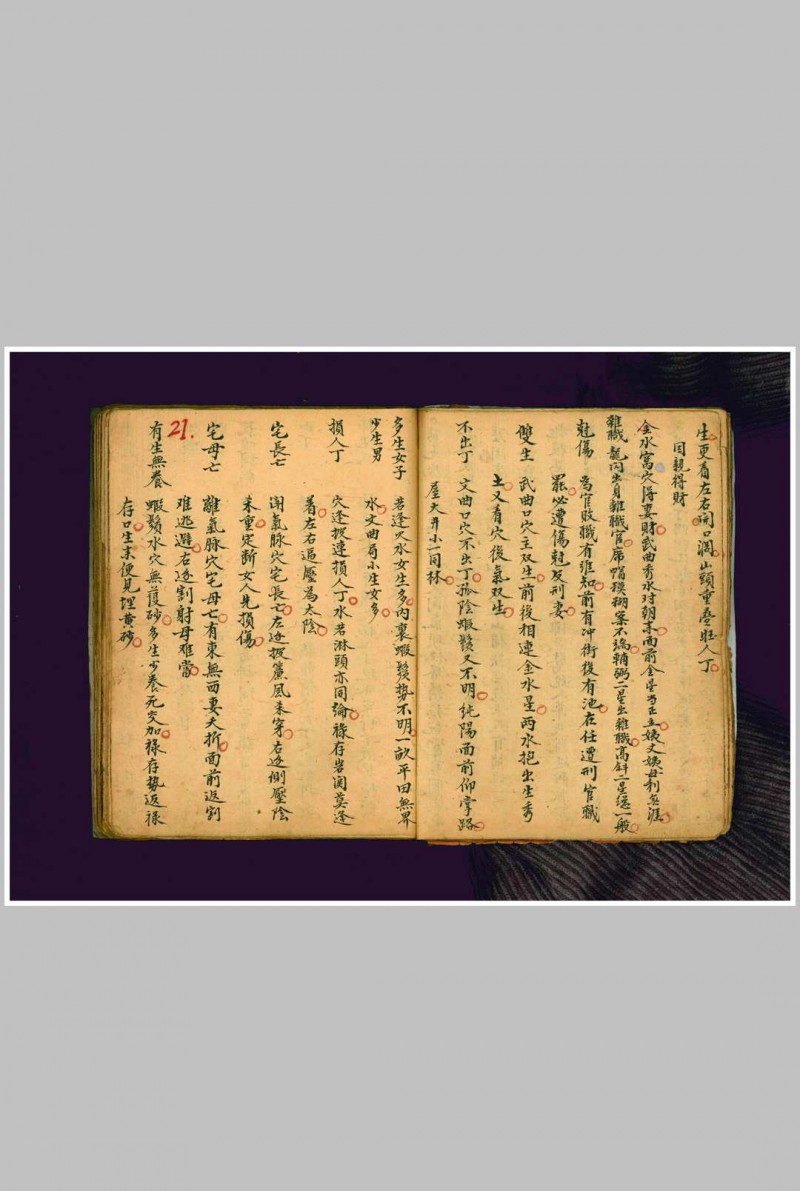 生更看左右開口濶山頭重叠旺人丁
因親得財
金水窩穴得妻財武曲秀水对朝來面前金星当正主姨丈姨母利無涯
雜職 龍向出身雜職官席帽模糊案不端輔弼二星出雜職高斜二星還一般
尅傷 為官敗職有誰知前有冲衖後有池在任遭刑官職
罷必遭傷尅及刑妻
雙生 武曲口穴主双生前後相連金水星两水抱出生秀
土又看穴後氣双生
不出丁 文曲口穴不出丁孤陰蝦鬚又不明純陽面前仰掌路
屋大井小一同林
多生女子 若逢火水女生多内裏蝦鬚势不明一畝平田無界
少生男 水文曲局小生女多
損人丁 穴逢披連損人丁水若淋頭亦同論祿存岩闕莫逢
着左右逼壓為太陰
宅長亡 闭氣脉穴宅長亡左邊披簾風来穿右邊側壓陰
来重定断女人先損傷
宅母亡 離氣脉穴宅母亡有東無西妻夭折面前返割
难迯避右邊割射母难當
21.
有生無養 蝦鬚水穴無護砂多生少養死交加祿存势返祿
存口生來便見埋黄砂